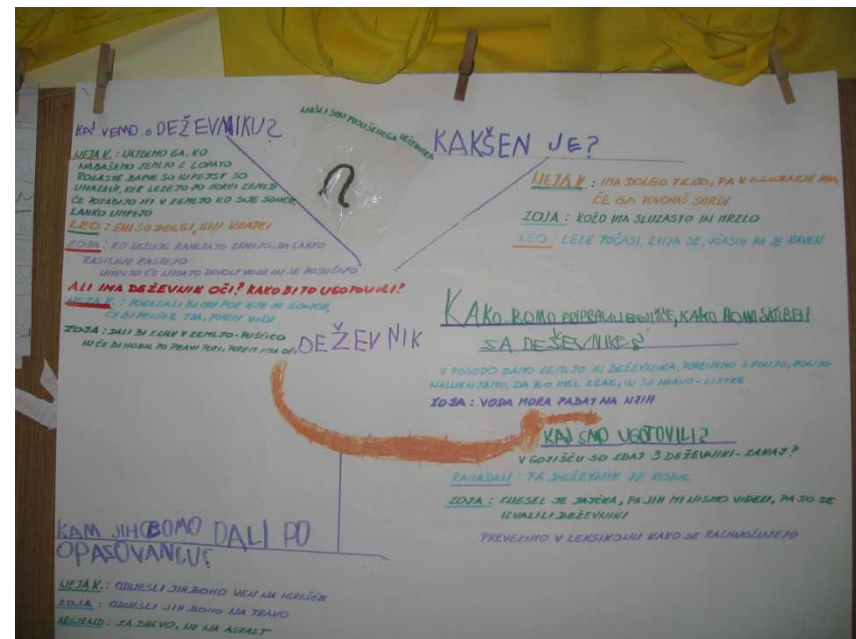 KAJ VEMO O DEŽEVNIKU?
NEJA K.: NAJDEMO GA, KO
ZEMLJO Z LOPATO
ROZASTE BARVE SO IN PEJST SO
UMAZANI, KER LEZEJO PO MOKRI ZEMLJI
ČE POZABIJO ITI V ZEMLJO KO SIJE SONCE,
LAHKO UMREJO
LEO: ENI SO DOLGI, ENI KRATKI
ZOJA: KO DEŽUJE RAHLJAJO ZEMLJO, DA LAHKO
RASTLINE RASTEJO
UMREJO ČE NIMAJO DOVOLJ VODE IN SE POSUŠIJO
ALI IMA DEŽEVNIK OČI? KAKO BI TO UGOTOVILI?
NEJA K.: POKAZALI BI MU POT KJE JE SONCE,
ČE BI PRIŠEL TJA, POTEM VIDI
ZOJA: DALI BI ZNAK V ZEMLJO - PUŠČICO
IN ČE BI HODIL PO PRAVI POTI, POTEM IMA OČI
NAŠLI SMO POSUŠENEGA DEŽEVNIKA
KAKŠEN JE?
NEJA K.: IMA DOLGO TELO, PA KOLOBARJE IMA,
ČE GA POVOHAŠ SMRDI
ZOJA: KOŽO IMA SLUZASTO IN MRZLO
LEO: LEZE POČASI, ZVIJA SE, VČASIH PA JE RAVEN
DEŽEVNIK
KAKO BOMO PRIPRAVILI GOJIŠČE, KAKO BOMO SKRBELI
ZA DEŽEVNIKE?
V POSODO DAMO ZEMLJO IN DEŽEVNIKA, POKRIJEMO S FOLIJO, FOLIJO
NALUKNJAMO, DA BO IMEL ZRAK, IN ŠE HRANO - LISTEK
ZOJA: VODA MORA PADAT NA NJIH
KAJ SMO UGOTOVILI?
V GOJIŠČU SO ZDAJ 3 DEŽEVNIKI - ZAKAJ?
TA DEŽEVNIK JE RODIL
ZOJA: ZNESEL JE JAJČKA, PA JIH MI NISMO VIDELI, PA SO SE
IZVALILI DEŽEVNIKI
PREVERIMO V LEKSIKONU KAKO SE RAZMNOŽUJEJO
KAM JIH BOMO DALI PO
OPAZOVANJU?
NEJA K.: ODNESLI JIH BOMO VEN NA IGRIŠČE
ZOJA: ODNESLI JIH BOMO NA TRAVO
ARGJEND: ZA DREVO, NE NA ASFALT